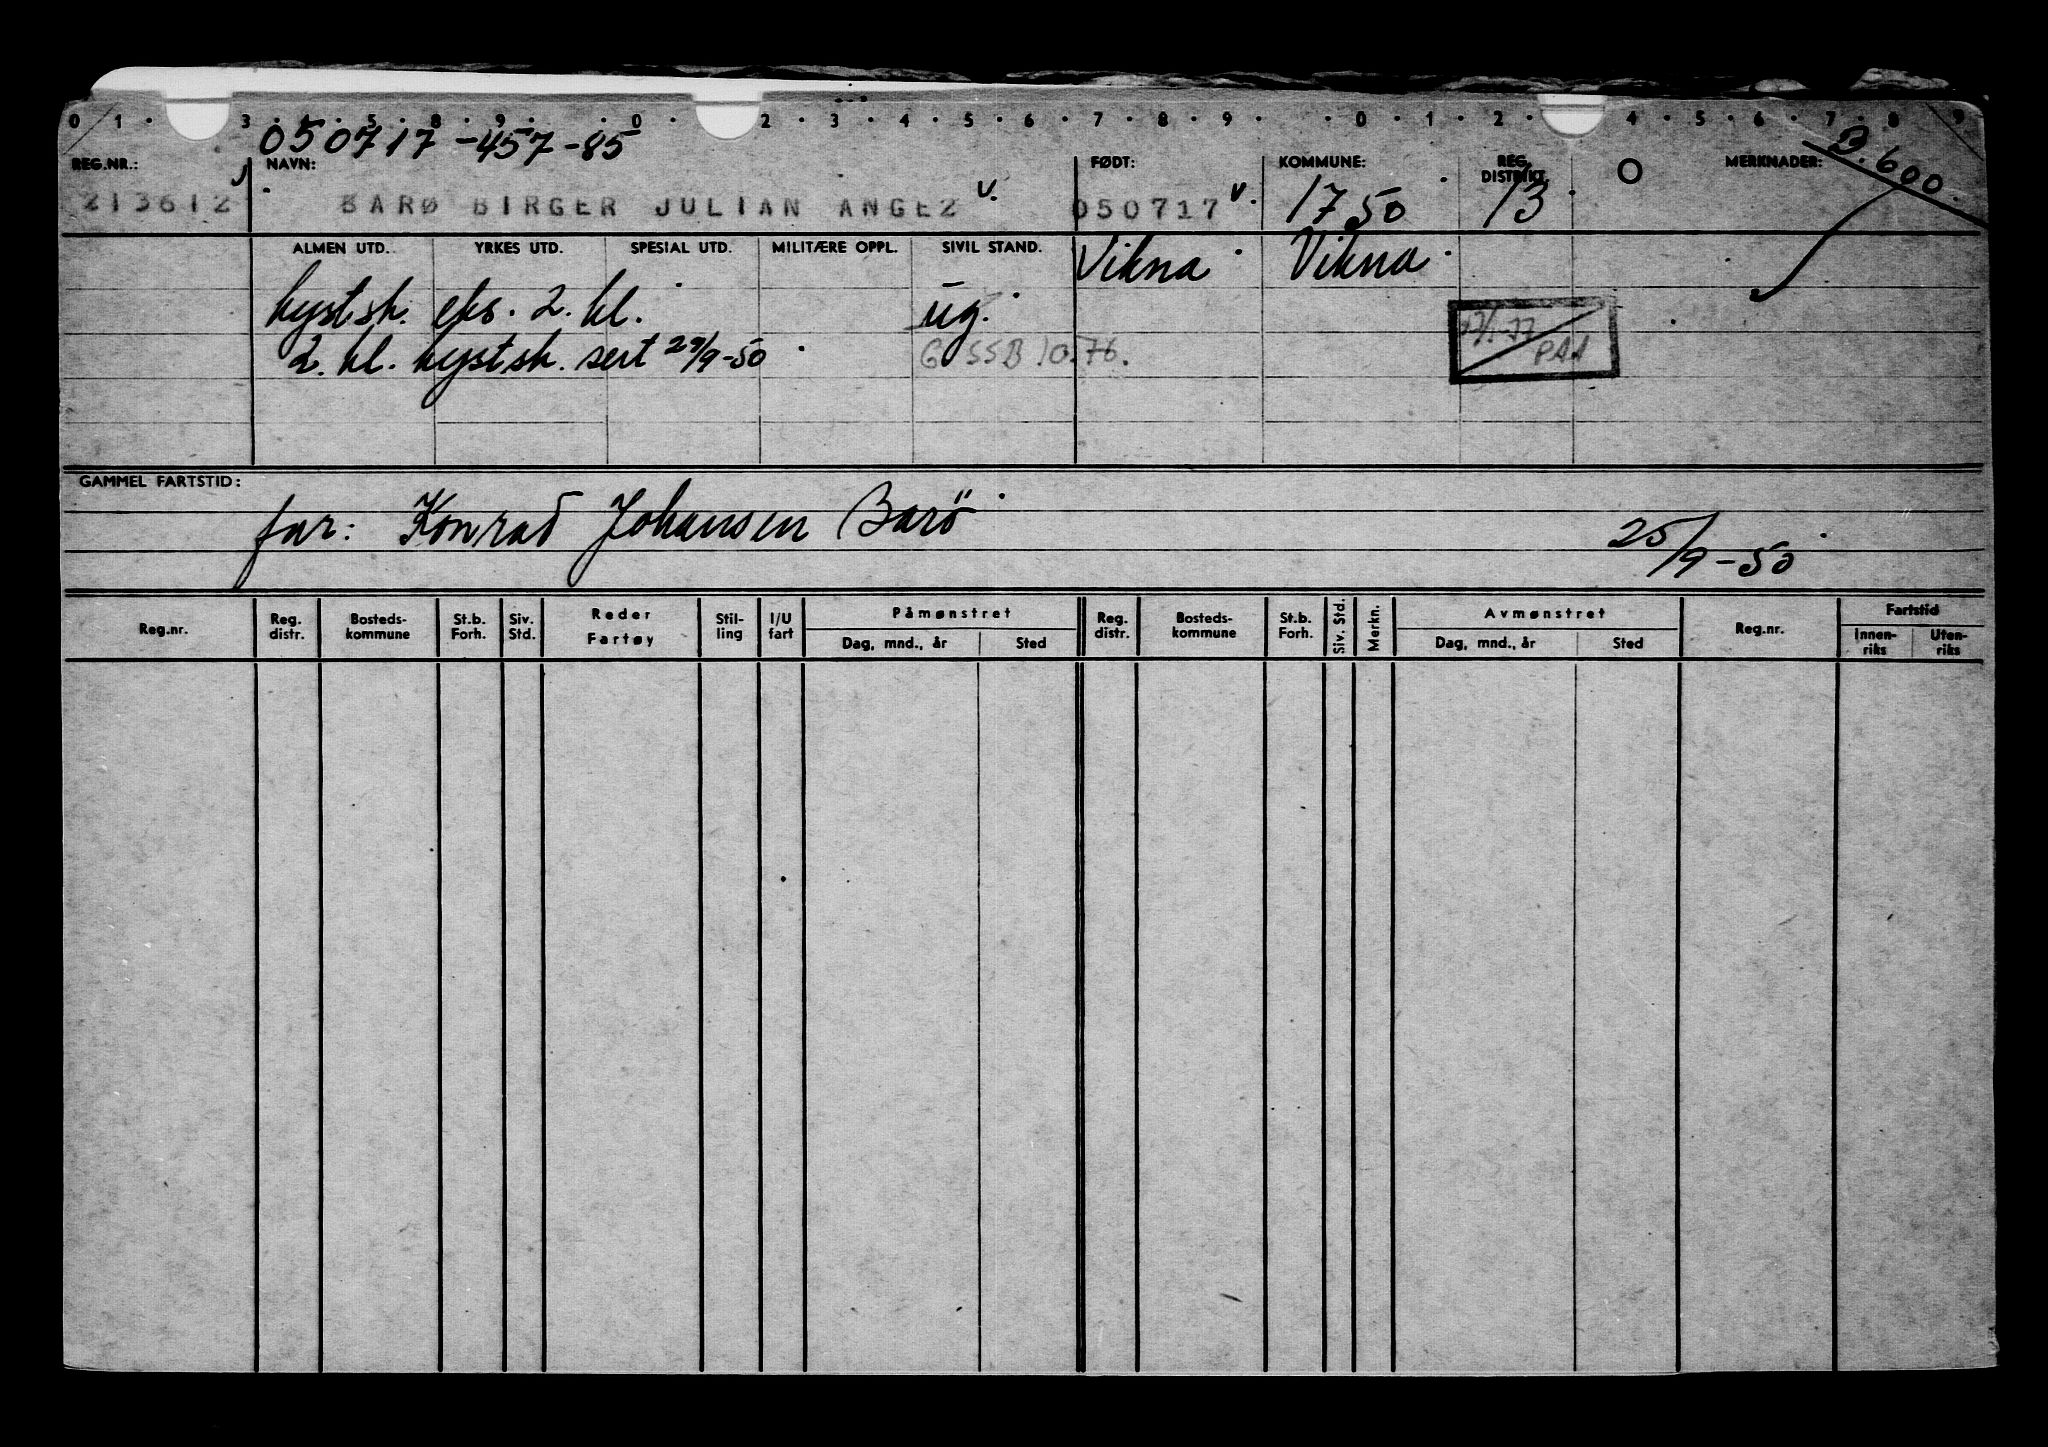 0 1 3 5 8 9 0 2 3 4 5 6 7 8 9 0 1 2 4 5 6 7 8 9
050717-457-85
B.600
REG.NR.: NAVN: FØDT: KOMMUNE: REG. DISTRIKT. O MERKNADER:
213612 BARØ BIRGER JULIAN ANGEZ v. 050717 v. 1750 13
ALMEN UTD. YRKES UTD. SPESIAL UTD. MILITÆRE OPPL. SIVIL STAND. Vikna Vikna
kystsk. eks. 2. kl. ug.
2. kl. kystsk. sert 29/9-50 G SSB 10.76.
PAA
GAMMEL FARTSTID:
far: Konrad Johansen Barö 25/9-50
Reg.nr. Reg. distr. Bosteds-kommune St.b. Forh. Siv. Std. Reder Fartøy Stil-ling I/U fart Påmønstret Dag, mnd., år Sted Reg. distr. Bosteds-kommune St.b. Forh. Siv. Std. Merkn. Avmønstret Dag, mnd., år Sted Reg.nr. Fartstid Innen-riks Uten-riks